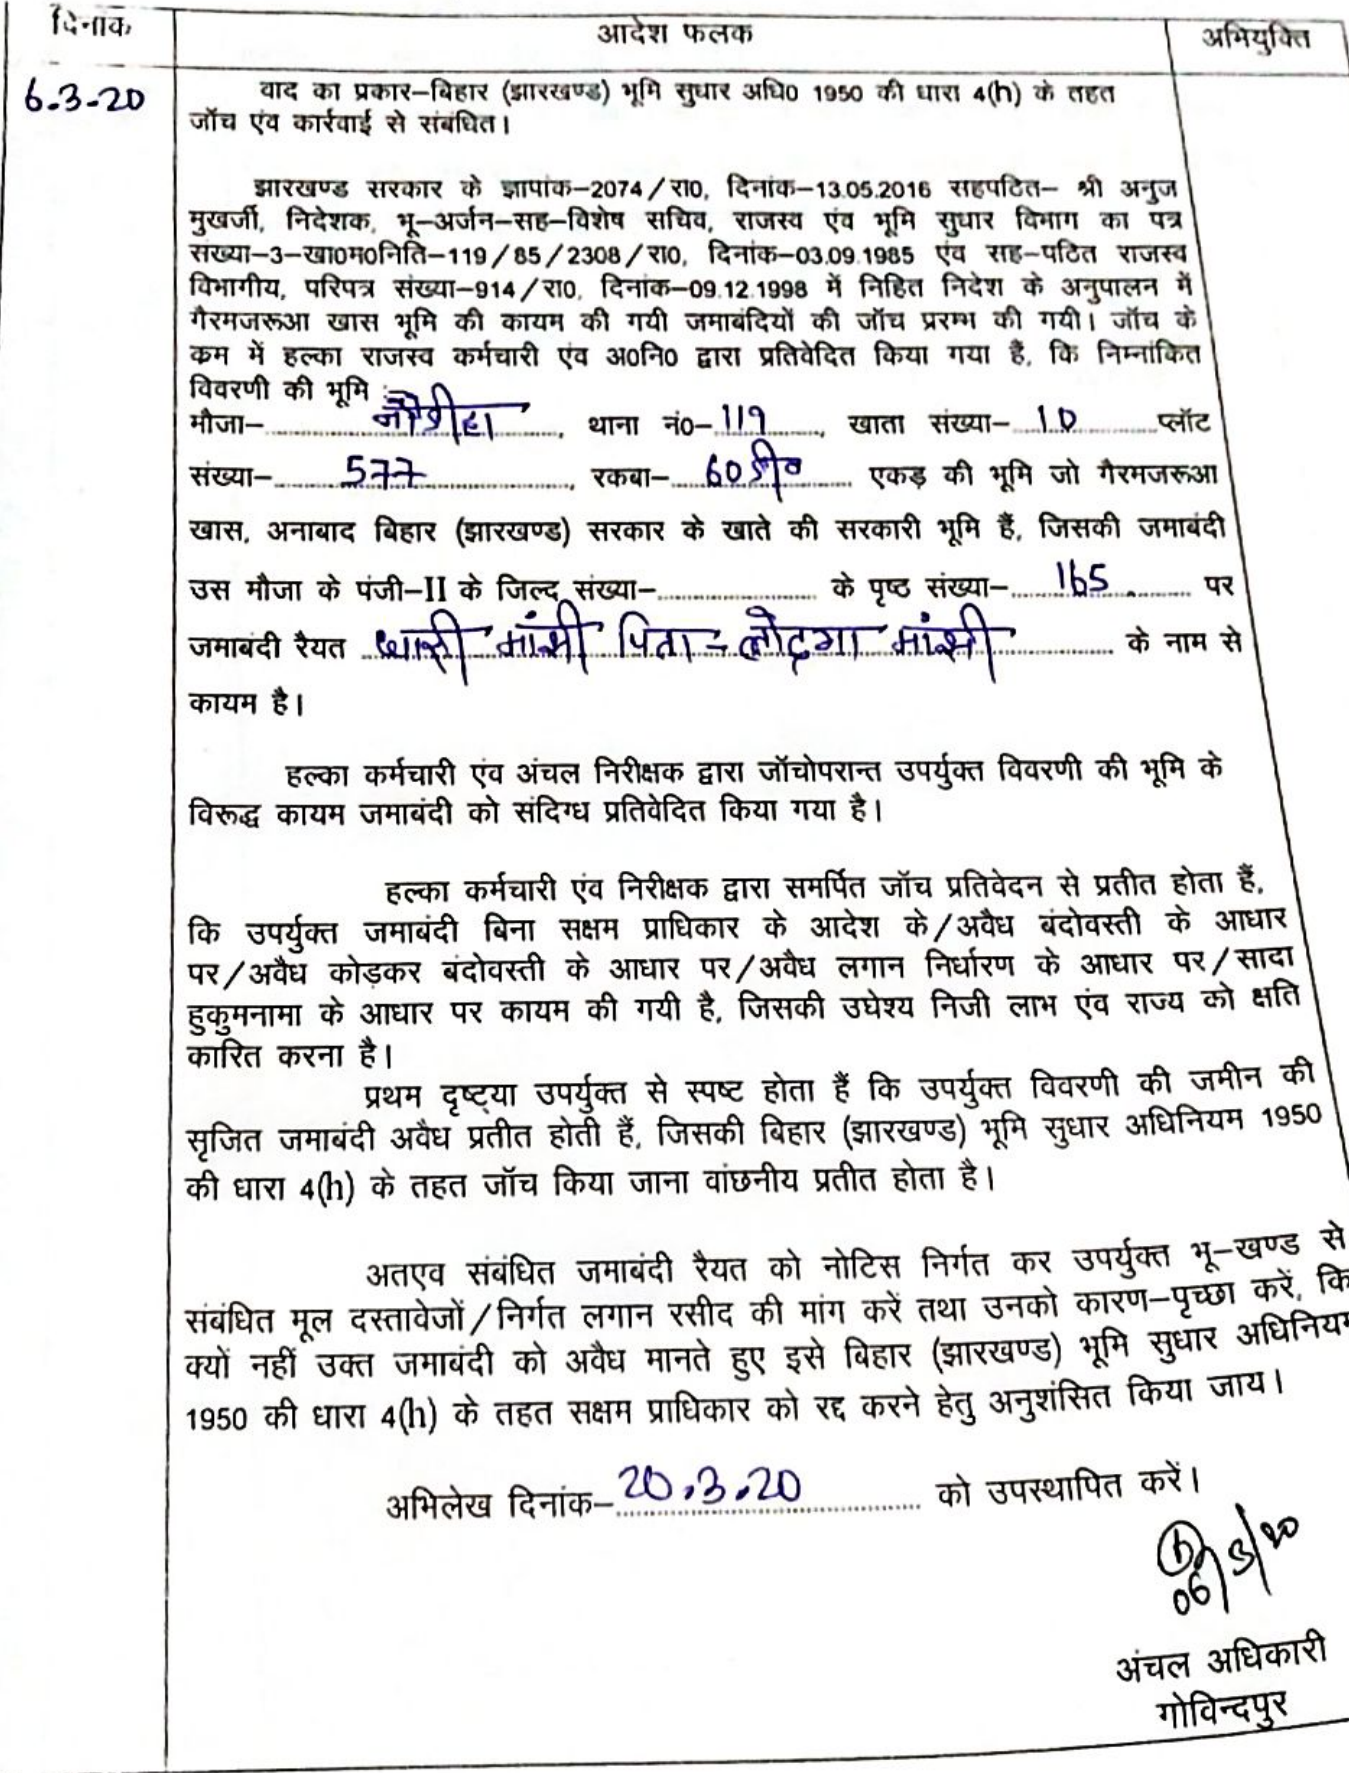 दिनांक आदेश फलक अभियुक्ति
6.3.20 वाद का प्रकार–बिहार (झारखण्ड) भूमि सुधार अधि० 1950 की धारा 4(h) के तहत
जॉच एंव कार्रवाई से संबंधित।
झारखण्ड सरकार के ज्ञापांक–2074/रा०, दिनांक–13.05.2016 सहपठित– श्री अनुज
मुखर्जी, निदेशक, भू–अर्जन–सह–विशेष सचिव, राजस्व एंव भूमि सुधार विभाग का पत्र
संख्या–3–खा०म०निति–119/85/2308/रा०, दिनांक–03.09.1985 एंव सह–पठित राजस्व
विभागीय, परिपत्र संख्या–914/रा०, दिनांक–09.12.1998 में निहित निदेश के अनुपालन में
गैरमजरूआ खास भूमि की कायम की गयी जमाबंदियों की जॉच प्ररम्भ की गयी। जॉच के
क्रम में हल्का राजस्व कर्मचारी एंव अ०नि० द्वारा प्रतिवेदित किया गया हैं, कि निम्नांकित
विवरणी की भूमि :–
मौजा– थाना नं०–119, खाता संख्या– 10 प्लॉट
संख्या– 577, रकबा– 60 डी० एकड़ की भूमि जो गैरमजरूआ
खास, अनाबाद बिहार (झारखण्ड) सरकार के खाते की सरकारी भूमि हैं, जिसकी जमाबंदी
उस मौजा के पंजी–II के जिल्द संख्या– के पृष्ठ संख्या– 165 पर
जमाबंदी रैयत मांझी पिता = मांझी के नाम से
कायम है।
हल्का कर्मचारी एंव अंचल निरीक्षक द्वारा जॉचोपरान्त उपर्युक्त विवरणी की भूमि के
विरूद्ध कायम जमाबंदी को संदिग्ध प्रतिवेदित किया गया है।
हल्का कर्मचारी एंव निरीक्षक द्वारा समर्पित जॉच प्रतिवेदन से प्रतीत होता हैं,
कि उपर्युक्त जमाबंदी बिना सक्षम प्राधिकार के आदेश के/अवैध बंदोवस्ती के आधार
पर/अवैध कोड़कर बंदोवस्ती के आधार पर/अवैध लगान निर्धारण के आधार पर/सादा
हुकुमनामा के आधार पर कायम की गयी है, जिसकी उघेश्य निजी लाभ एंव राज्य को क्षति
कारित करना है।
प्रथम दृष्ट्या उपर्युक्त से स्पष्ट होता हैं कि उपर्युक्त विवरणी की जमीन की
सृजित जमाबंदी अवैध प्रतीत होती हैं, जिसकी बिहार (झारखण्ड) भूमि सुधार अधिनियम 1950
की धारा 4(h) के तहत जॉच किया जाना वांछनीय प्रतीत होता है।
अतएव संबंधित जमाबंदी रैयत को नोटिस निर्गत कर उपर्युक्त भू–खण्ड से
संबंधित मूल दस्तावेजों/निर्गत लगान रसीद की मांग करें तथा उनको कारण–पृच्छा करें, कि
क्यों नहीं उक्त जमाबंदी को अवैध मानते हुए इसे बिहार (झारखण्ड) भूमि सुधार अधिनियम
1950 की धारा 4(h) के तहत सक्षम प्राधिकार को रद्द करने हेतु अनुशंसित किया जाय।
अभिलेख दिनांक– 20.3.20 को उपस्थापित करें।
06/3/20
अंचल अधिकारी
गोविन्दपुर